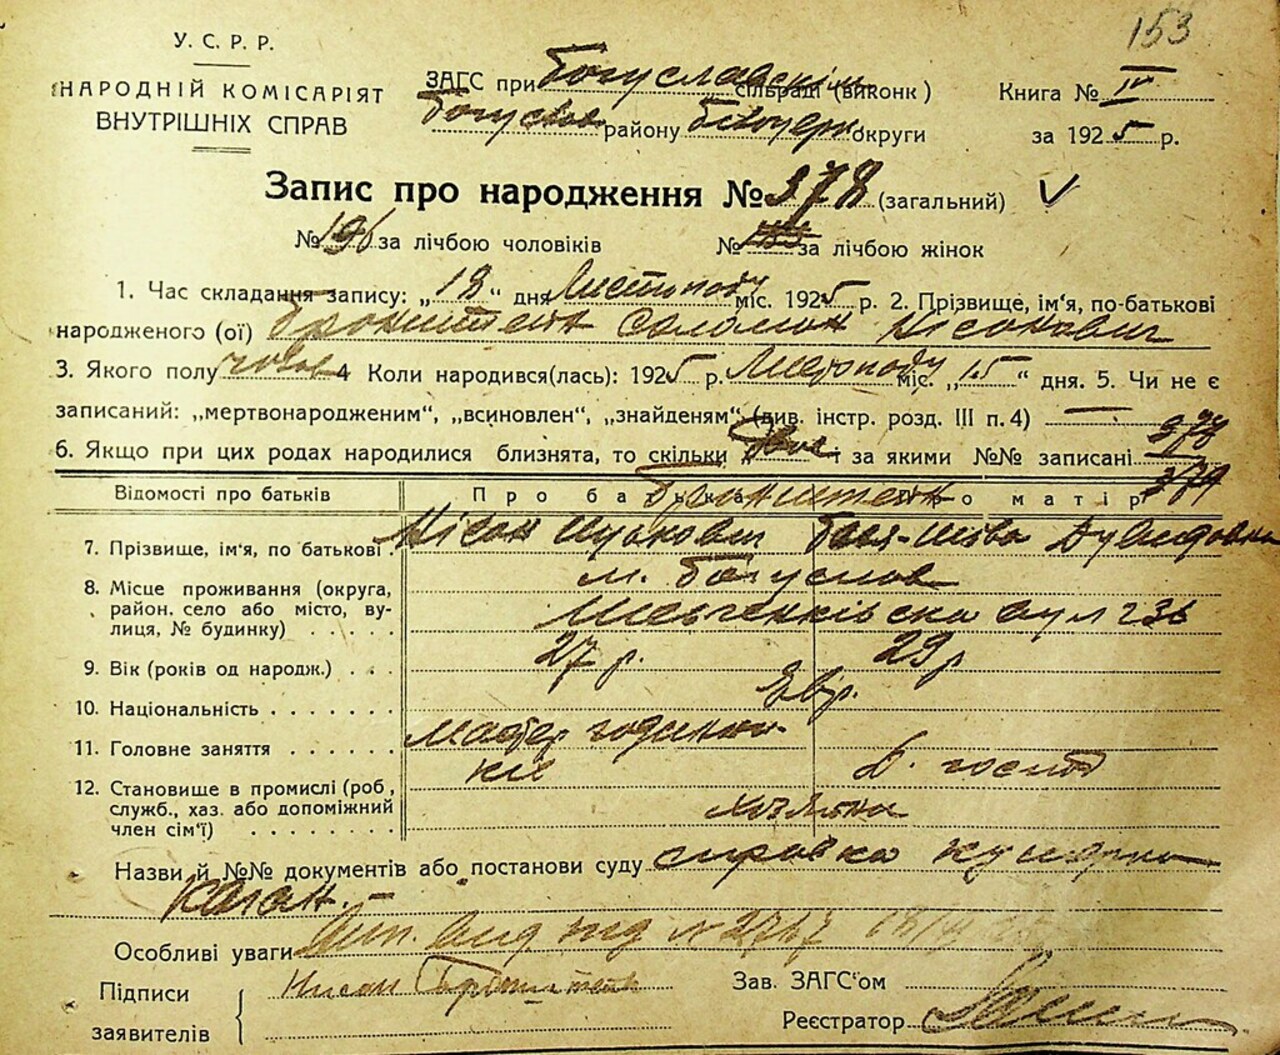 153
У. С. Р. Р.
НАРОДНІЙ КОМІСАРІЯТ
ВНУТРІШНІХ СПРАВ
ЗАГС при Богуславскім сільраді (виконк)
Богуслав району Білоцерк округи
Книга № IV
за 1925 р.
Запис про народження № 378 (загальний) V
№ 196 за лічбою чоловіків № за лічбою жінок
1. Час складання запису: „ 18 “ дня Листопаду міс. 1925 р. 2. Прізвище, ім'я, по-батькові
народженого (ої) Бронштейн Соломон Нісонович
3. Якого полу чолов 4 Коли народився(лась): 1925 р. Листопаду міс. „ 15 “ дня. 5. Чи не є
записаний: „мертвонародженим“, „всиновлен“, „знайденям“ (див. інстр. розд. III п. 4) —
6. Якщо при цих родах народилися близнята, то скільки „ двоє “ і за якими №№ записані 378
379
Відомості про батьків Про батька Про матір
Бронштейн
7. Прізвище, ім'я, по батькові Нісон Бася-Шева Дувидовна
8. Місце проживання (округа, м. Богуслав
район, село або місто, ву-
лиця, № будинку) Шевченківска вул 236
9. Вік (років од народж.) 27 р. 29 р
10. Національність Євр.
11. Головне заняття мастер годинни-
ків Д. господ
12. Становище в промислі (роб,
служб., хаз. або допоміжний хозяїн
член сім'ї)
Назви й №№ документів або постанови суду справка
Каган. —
Особливі уваги № 2717
Підписи Нисон Бронштейн Зав. ЗАГС'ом
заявителів Реєстратор